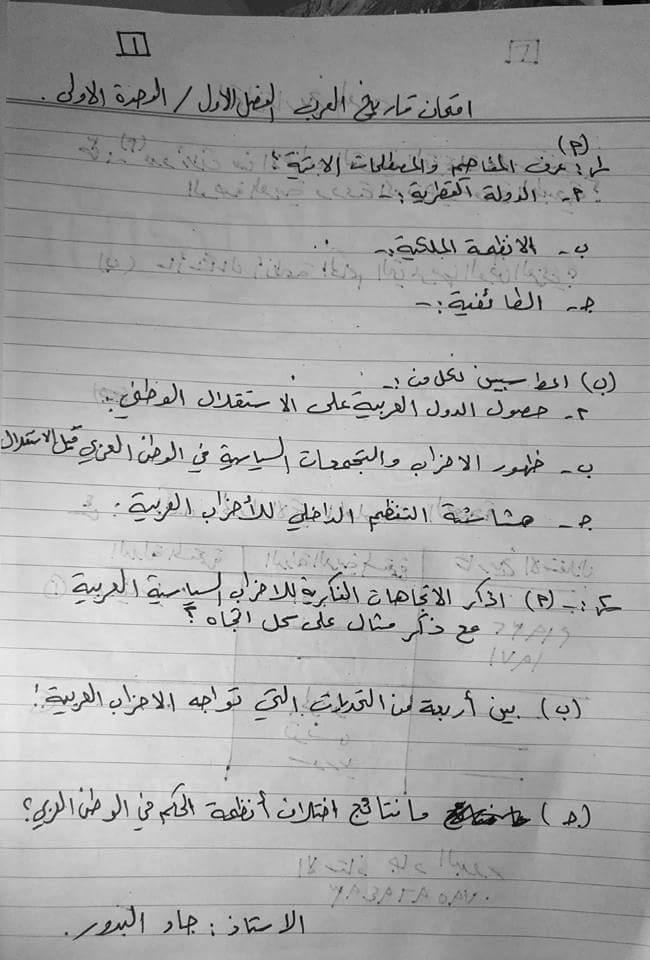 ١
امتحان تاريخ العرب الفصل الاول / الوحدة الاولى .
(٢)
س١: عرف المفاهيم والمصطلحات الاتية :
٢- الدولة القطرية :-
ب- الانظمة الملكية :-
جـ- الطائفية :-
(ب) اعط سببين لكل من :-
٢- حصول الدول العربية على الاستقلال الوطني :
ب- ظهور الاحزاب والتجمعات السياسية في الوطن العربي قبل الاستقلال
جـ- هشاشة التنظيم الداخلي للأحزاب العربية :
س٢:- (٢) اذكر الاتجاهات الفكرية للاحزاب السياسية العربية
مع ذكر مثال على كل اتجاه ؟
(ب) بين أربعة من التحديات التي تواجه الاحزاب العربية !
(جـ) ما نتائج اختلاف أنظمة الحكم في الوطن العربي ؟
الاستاذ : جاد البدور .